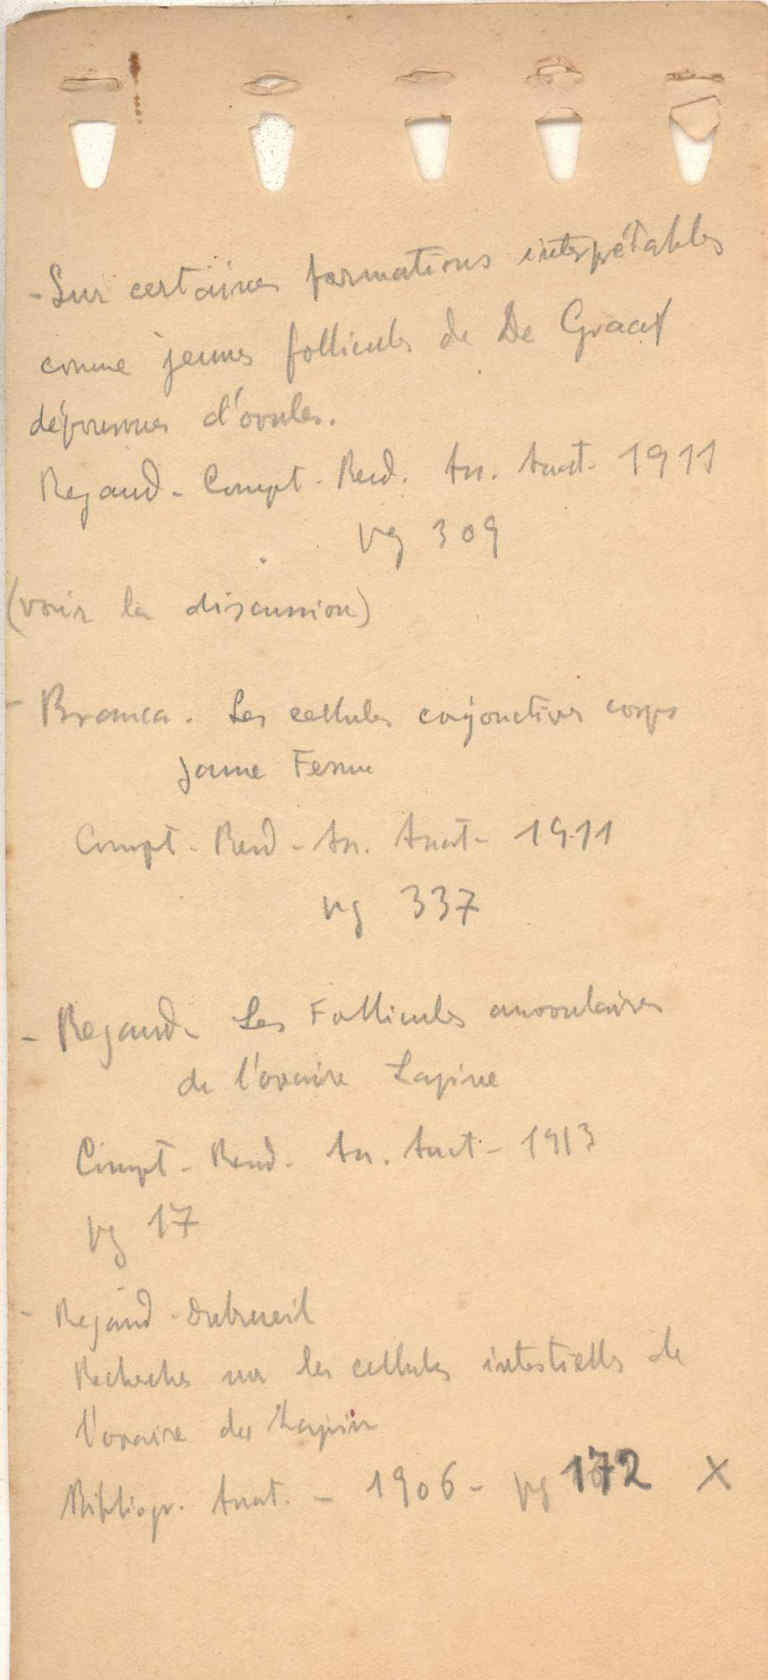 - Sur certaines formations interprétables
comme jeunes follicules de De Graaf
dépourvues d'ovules.
Regaud - Compt - Rend. As. Anat - 1911
pg 309
(voir la discussion)
- Branca. Les cellules conjonctives corps
jaune Femme
Compt - Rend - As. Anat - 1911
pg 337
- Regaud - Les Follicules anovulaires
de l'ovaire Lapine
Compt - Rend - As. Anat - 1913
pg 17
- Regaud - Dubreuil
Recherches sur les cellules interstielles de
l'ovaire du Lapin
Bibliogr. Anat. - 1906 - pg 172 X